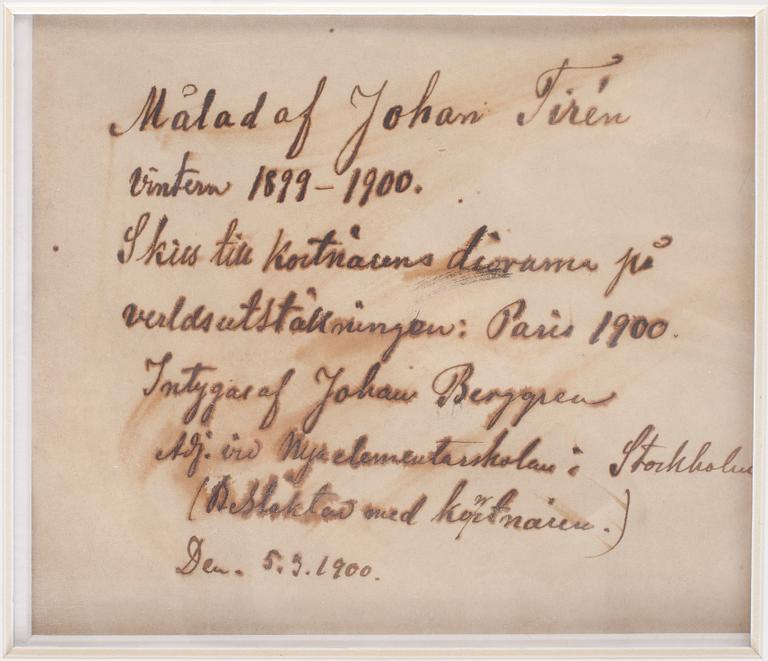 Målad af Johan Tirén
Vintern 1899–1900.
Skiss till kortnärens diorama på
verldsutställningen: Paris 1900.
Intygas af Johan Berggren
Adj. vid Nya elementarskolan i Stockholm
(Beslaktad med kortnären.)
Den. 5.3.1900.